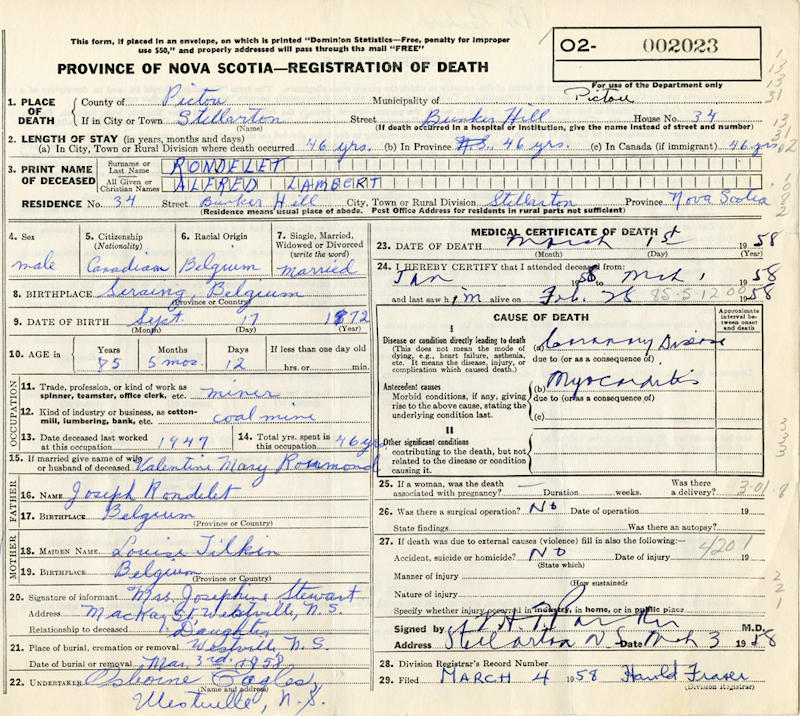 This form, if placed in an envelope, on which is printed "Dominion Statistics—Free, penalty for improper
use $50," and properly addressed will pass through the mail "FREE"
O2- 002023
PROVINCE OF NOVA SCOTIA—REGISTRATION OF DEATH
For use of the Department only
1. PLACE OF DEATH County of Pictou Municipality of Pictou
If in City or Town Stellarton Street Bunker Hill House No. 34
(Name) (If death occurred in a hospital or institution, give the name instead of street and number)
2. LENGTH OF STAY (in years, months and days)
(a) In City, Town or Rural Division where death occurred 46 yrs. (b) In Province N.S. 46 yrs. (c) In Canada (if immigrant) 46 yrs
3. PRINT NAME OF DECEASED Surname or Last Name RONDELET
All Given or Christian Names ALFRED LAMBERT
RESIDENCE No. 34 Street Bunker Hill City, Town or Rural Division Stellarton Province Nova Scotia
(Residence means usual place of abode. Post Office Address for residents in rural parts not sufficient)
4. Sex 5. Citizenship (Nationality) 6. Racial Origin 7. Single, Married, Widowed or Divorced (write the word)
male Canadian Belgium Married
8. BIRTHPLACE Seraing, Belgium
(Province or Country)
9. DATE OF BIRTH Sept. 17 1872
(Month) (Day) (Year)
10. AGE in Years Months Days If less than one day old
85 5 mos. 12 hrs. or min.
OCCUPATION
11. Trade, profession, or kind of work as
spinner, teamster, office clerk, etc. miner
12. Kind of industry or business, as cotton-
mill, lumbering, bank, etc. coal mine
13. Date deceased last worked at this occupation 1947 14. Total yrs. spent in this occupation 46 yrs
15. If married give name of wife
or husband of deceased Valentine Mary Rosmond
FATHER
16. NAME Joseph Rondelet
17. BIRTHPLACE Belgium
(Province or Country)
MOTHER
18. MAIDEN NAME Louise Tilkin
19. BIRTHPLACE Belgium
(Province or Country)
20. Signature of informant Mrs. Josephine Stewart
Address MacKay St. Westville, N.S.
Relationship to deceased Daughter
21. Place of burial, cremation or removal Westville, N.S.
Date of burial or removal Mar. 3rd. 1958
22. UNDERTAKER Osborne
(Name and address)
Westville, N.S.
MEDICAL CERTIFICATE OF DEATH
23. DATE OF DEATH March 1st 1958
(Month) (Day) (Year)
24. I HEREBY CERTIFY that I attended deceased from:
Jan 1958 to Mch 1 1958
and last saw him alive on Feb. 28 1958
85-5-12 00
CAUSE OF DEATH
Approximate interval between onset and death
I
Disease or condition directly leading to death (a) Coronary Disease
(This does not mean the mode of
dying, e.g., heart failure, asthenia,
etc. It means the disease, injury, or
complication which caused death.)
due to (or as a consequence of)
Antecedent causes (b) Myocarditis
Morbid conditions, if any, giving
rise to the above cause, stating the
underlying condition last.
due to (or as a consequence of)
(c)
II
Other significant conditions
contributing to the death, but not
related to the disease or condition
causing it.
25. If a woman, was the death associated with pregnancy? — Duration weeks. Was there a delivery?
26. Was there a surgical operation? No Date of operation 19
State findings Was there an autopsy?
27. If death was due to external causes (violence) fill in also the following:—
4201
Accident, suicide or homicide? No Date of injury 19
(State which)
Manner of injury
(How sustained)
Nature of injury
Specify whether injury occurred in industry, in home, or in public place
Signed by M.D.
Address Stellarton N S Date Mch 3 1958
28. Division Registrar's Record Number
29. Filed MARCH 4 1958 Harold Fraser
(Division Registrar)